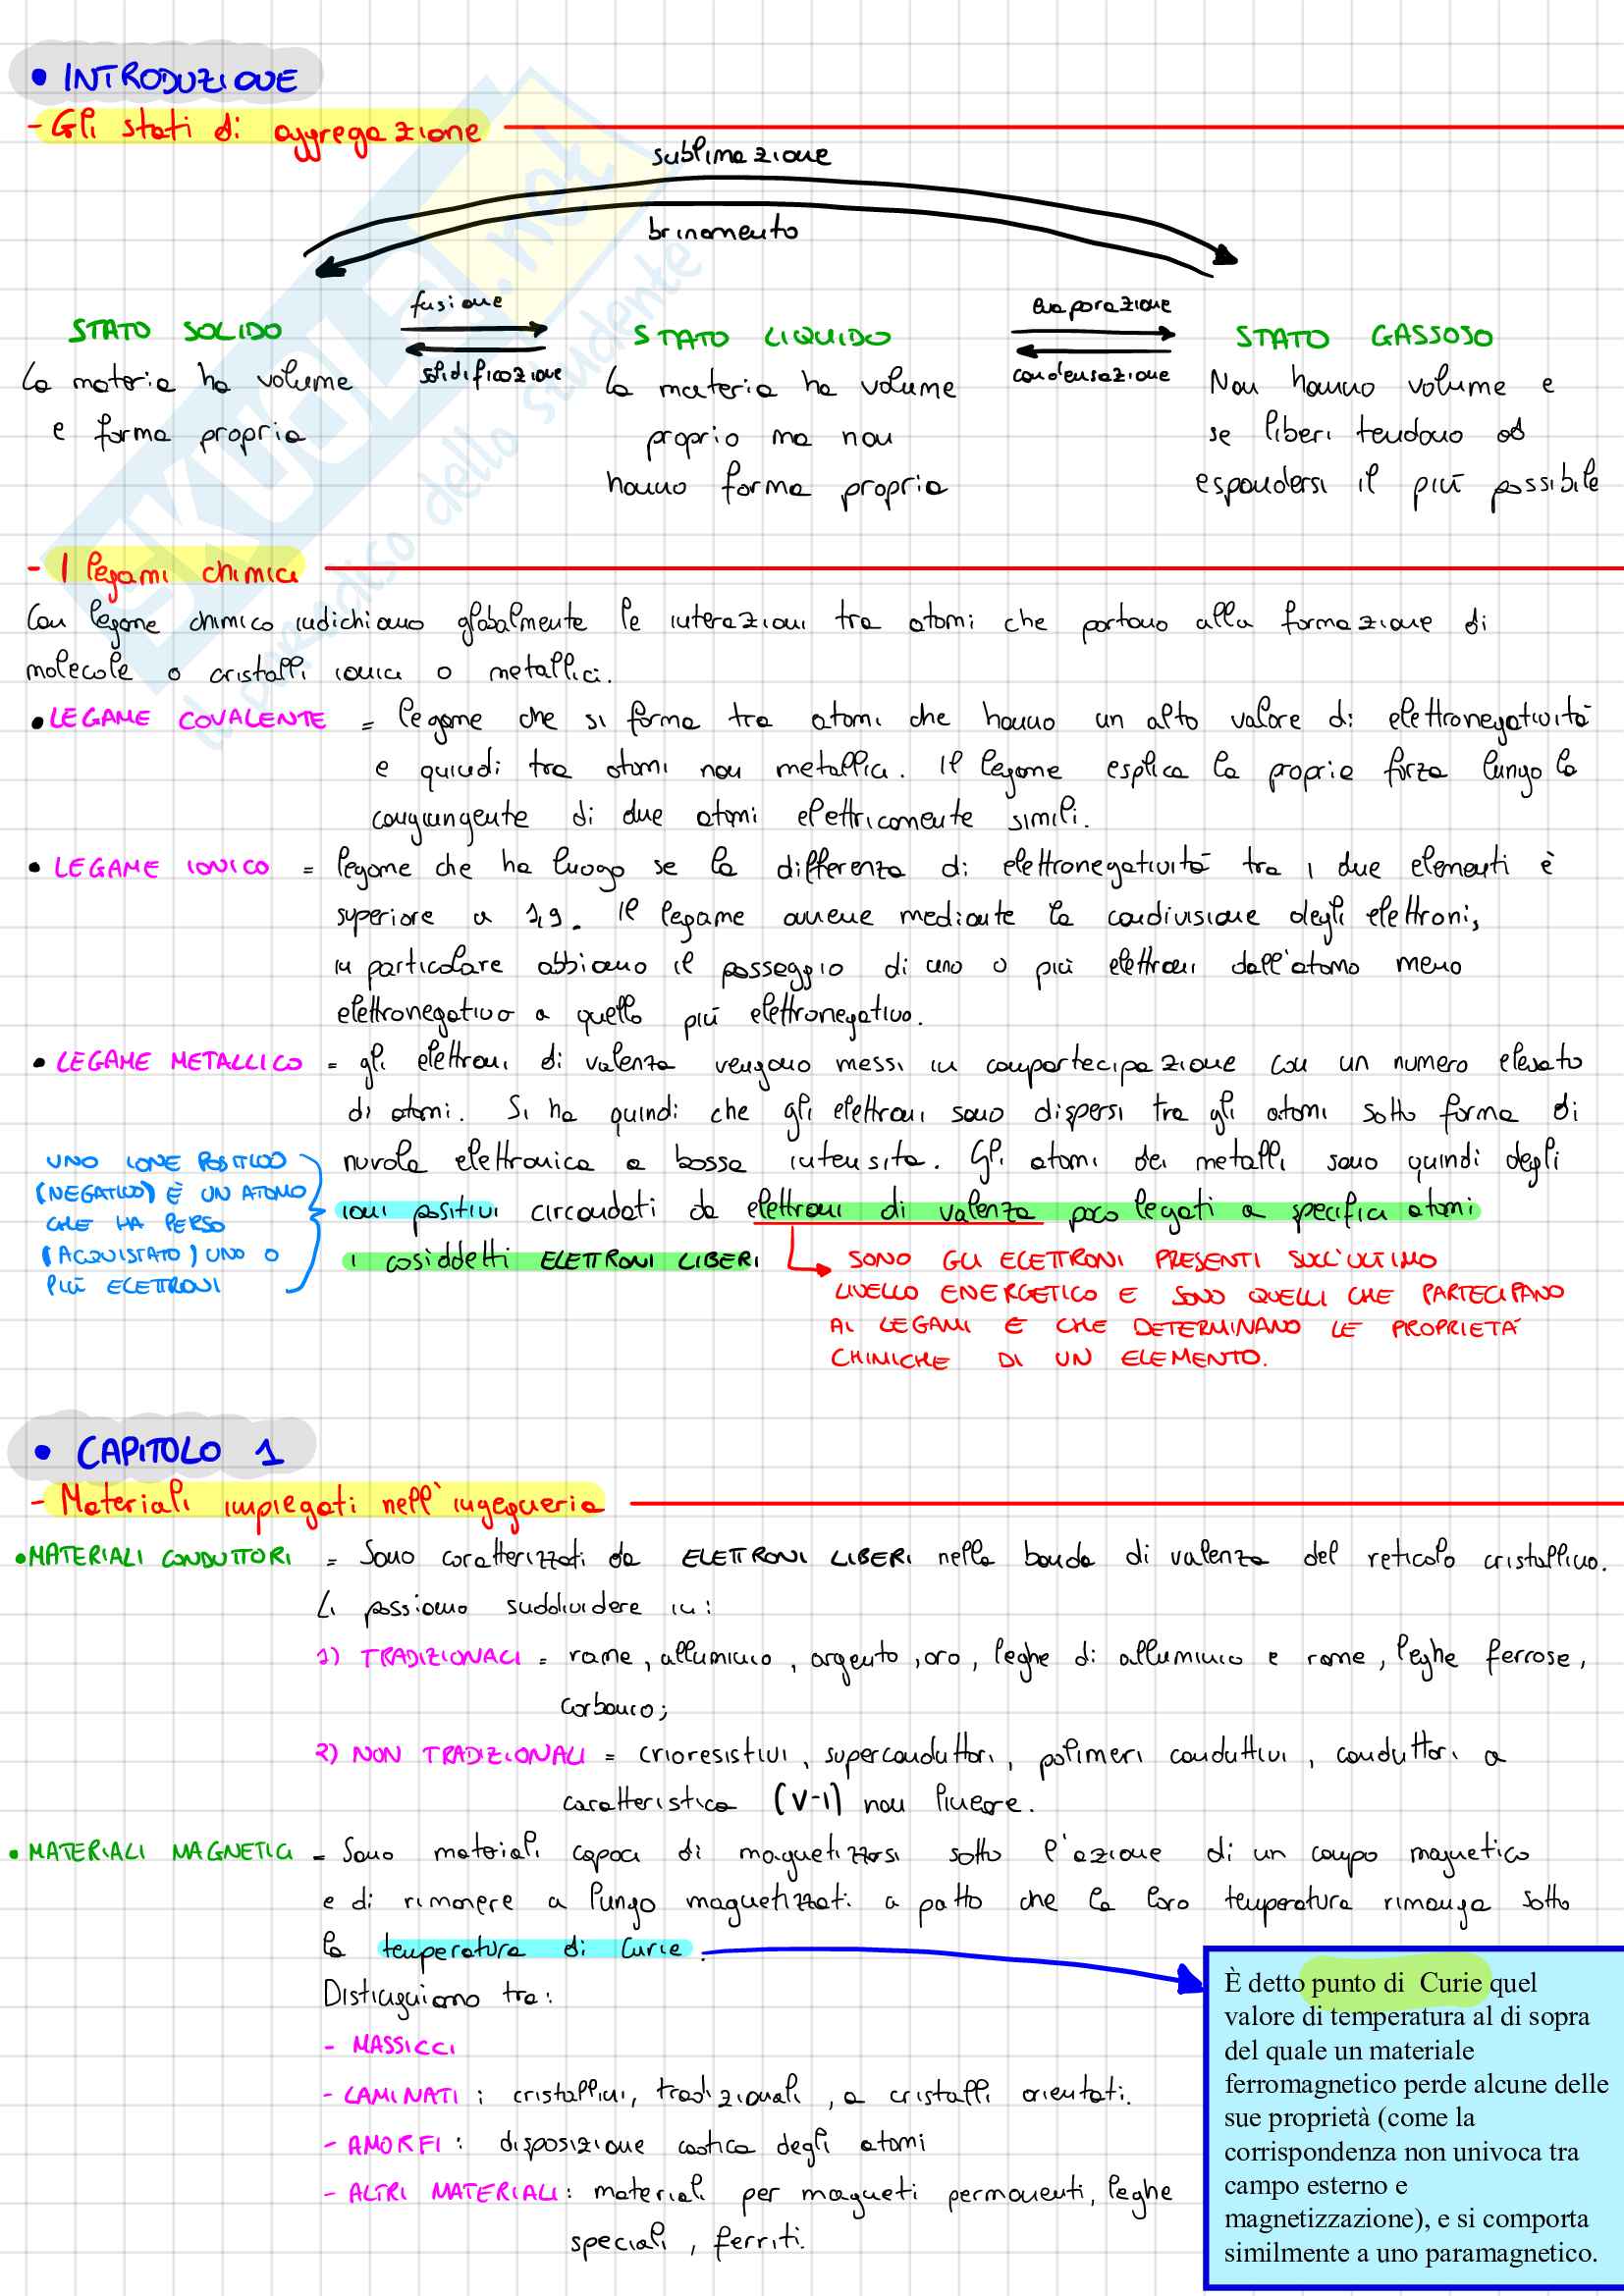 • INTRODUZIONE
- Gli stati di aggregazione
sublimazione
brinamento
fusione
evaporazione
STATO SOLIDO
STATO LIQUIDO
STATO GASSOSO
solidificazione
condensazione
La materia ha volume
e forma propria
La materia ha volume
proprio ma non
hanno forma propria
Non hanno volume e
se liberi tendono ad
espandersi il più possibile
- I legami chimici
Con legame chimico indichiamo globalmente le interazioni tra atomi che portano alla formazione di
molecole o cristalli ionici o metallici.
• LEGAME COVALENTE = legame che si forma tra atomi che hanno un alto valore di elettronegatività
e quindi tra atomi non metallici. Il legame esplica la propria forza lungo la
congiungente di due atomi elettricamente simili.
• LEGAME IONICO = legame che ha luogo se la differenza di elettronegatività tra i due elementi è
superiore a 1,9. Il legame avviene mediante la condivisione degli elettroni,
in particolare abbiamo il passaggio di uno o più elettroni dall'atomo meno
elettronegativo a quello più elettronegativo.
• LEGAME METALLICO = gli elettroni di valenza vengono messi in compartecipazione con un numero elevato
di atomi. Si ha quindi che gli elettroni sono dispersi tra gli atomi sotto forma di
nuvola elettronica a bassa intensita. Gli atomi dei metalli sono quindi degli
ioni positivi circondati da elettroni di valenza poco legati a specifici atomi
i cosiddetti ELETTRONI LIBERI
UNO IONE POSITIVO
(NEGATIVO) È UN ATOMO
CHE HA PERSO
(ACQUISTATO) UNO O
PIÙ ELETTRONI
SONO GLI ELETTRONI PRESENTI SULL'ULTIMO
LIVELLO ENERGETICO E SONO QUELLI CHE PARTECIPANO
AI LEGAMI E CHE DETERMINANO LE PROPRIETÀ
CHIMICHE DI UN ELEMENTO.
• CAPITOLO 1
- Materiali impiegati nell'ingegneria
• MATERIALI CONDUTTORI = Sono caratterizzati da ELETTRONI LIBERI nella banda di valenza del reticolo cristallino.
Li possiamo suddividere in:
1) TRADIZIONALI = rame, alluminio, argento, oro, leghe di alluminio e rame, leghe ferrose,
carbonio;
2) NON TRADIZIONALI = crioresistivi, superconduttori, polimeri conduttivi, conduttori a
caratteristica (V-I) non lineare.
• MATERIALI MAGNETICI = Sono materiali capaci di magnetizzarsi sotto l'azione di un campo magnetico
e di rimanere a lungo magnetizzati a patto che la loro temperatura rimanga sotto
la temperatura di Curie.
Distinguiamo tra:
- MASSICCI
- LAMINATI: cristallini, tradizionali, a cristalli orientati.
- AMORFI: disposizione caotica degli atomi
- ALTRI MATERIALI: materiali per magneti permanenti, leghe
speciali, ferriti.
È detto punto di Curie quel
valore di temperatura al di sopra
del quale un materiale
ferromagnetico perde alcune delle
sue proprietà (come la
corrispondenza non univoca tra
campo esterno e
magnetizzazione), e si comporta
similmente a uno paramagnetico.
SKUOLA.net
il paradiso dello studente